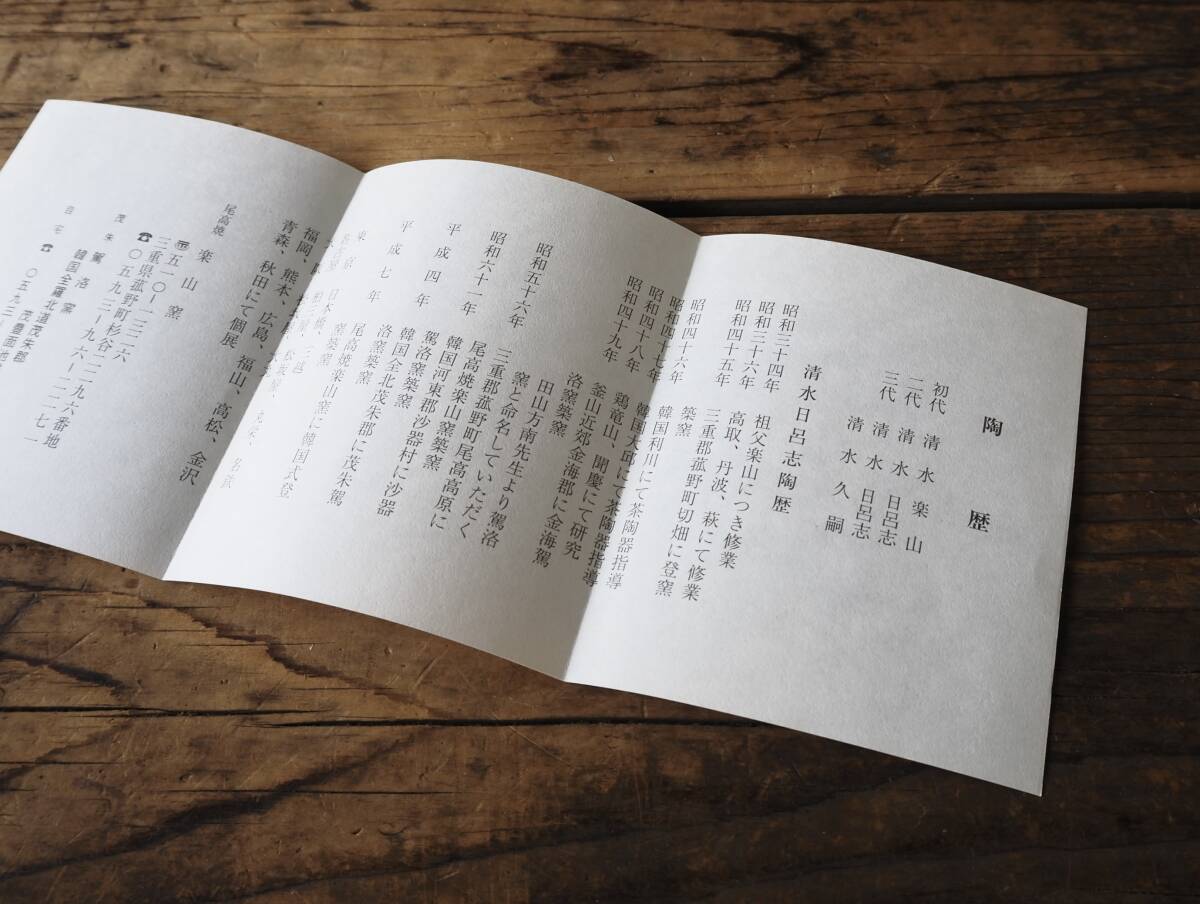 陶歴
初代 清水楽山
二代 清水日呂志
三代 清水久嗣
清水日呂志陶歴
昭和三十四年 祖父楽山につき修業
昭和三十六年 高取、丹波、萩にて修業
昭和四十五年 三重郡菰野町切畑に登窯
築窯
昭和四十六年 韓国利川にて茶陶器指導
昭和四十七年 韓国大邱にて茶陶器指導
昭和四十八年 鶏竜山、聞慶にて研究
昭和四十九年 釜山近郊金海郡に金海駕
洛窯築窯
田山方南先生より駕洛
窯と命名していただく
昭和五十六年 三重郡菰野町尾高高原に
尾高焼楽山窯築窯
昭和六十一年 韓国河東郡沙器村に沙器
駕洛窯築窯
平成四年 韓国全北茂朱郡に茂朱駕
洛窯築窯
平成七年 尾高焼楽山窯に韓国式登
窯築窯
東京 日本橋、三越
福岡、熊本、広島、福山、高松、金沢
青森、秋田にて個展
尾高焼 楽山窯
〒五一〇－一三二六
三重県菰野町杉谷二二九六番地
☎〇五九三－九六－二二七一
茂朱 駕洛窯
韓国全羅北道茂朱郡
茂豊面
自宅 ☎〇五九三